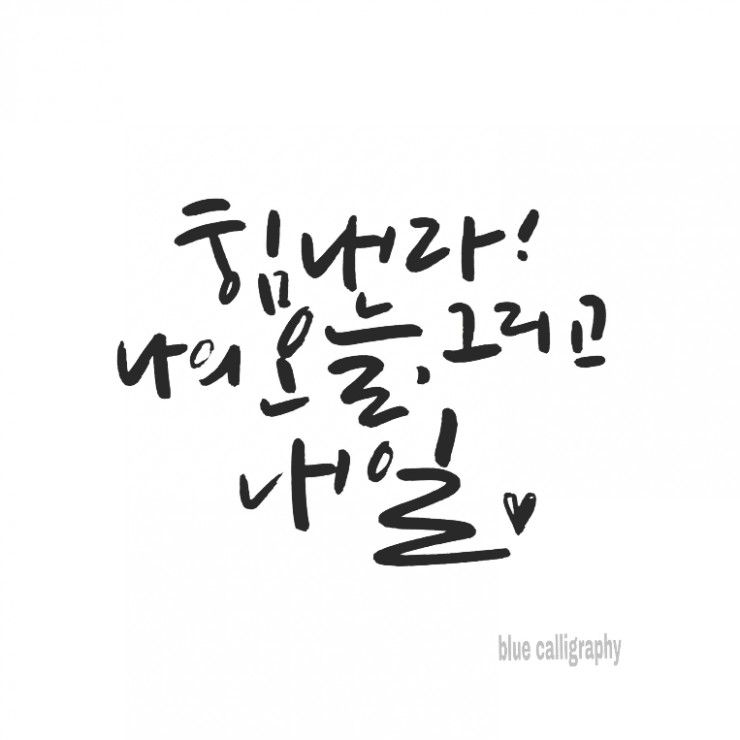 힘내라!
나의 오늘, 그리고
내일
blue calligraphy